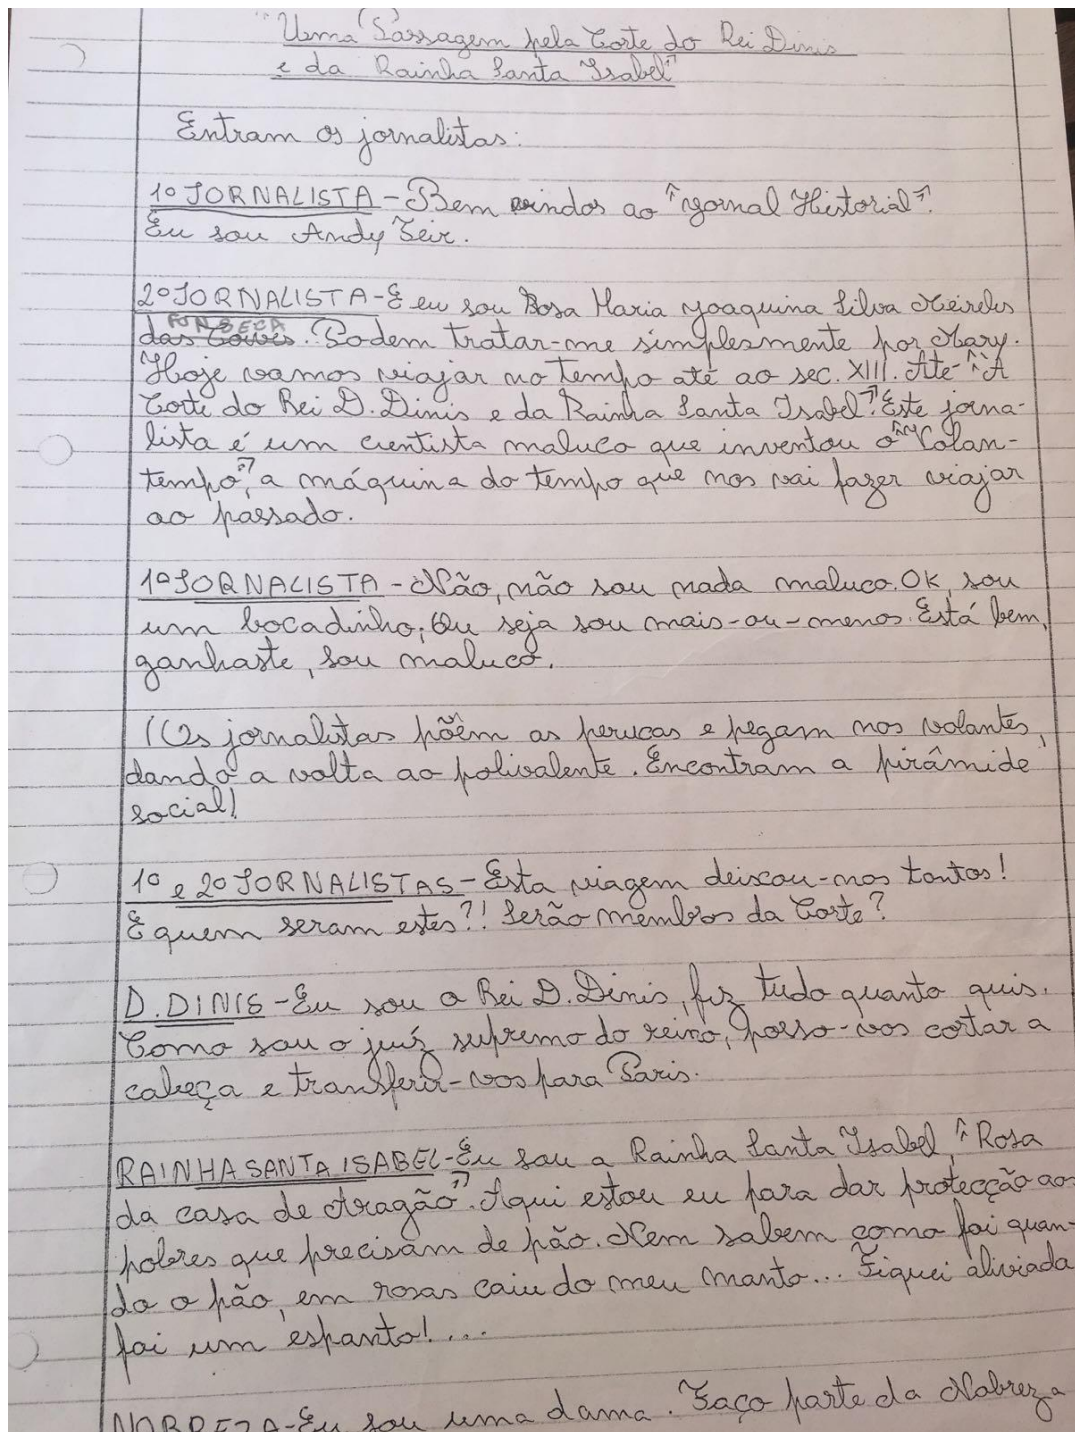 "Uma Passagem pela Corte do Rei Dinis
e da Rainha Santa Isabel"
Entram os jornalistas:
1º JORNALISTA - Bem vindos ao "Jornal Historial".
Eu sou Andy Feir.
2º JORNALISTA - E eu sou Rosa Maria Joaquina Silva Meireles
FONSECA
das Couves. Podem tratar-me simplesmente por Mary.
Hoje vamos viajar no tempo até ao sec. XIII. Até "A
Corte do Rei D. Dinis e da Rainha Santa Isabel". Este jorna-
lista é um cientista maluco que inventou o "Volan-
tempo", a máquina do tempo que nos vai fazer viajar
ao passado.
1º JORNALISTA - Não, não sou nada maluco. OK, sou
um bocadinho; Ou seja sou mais-ou-menos. Está bem,
ganhaste, sou maluco.
(Os jornalistas põem as perucas e pegam nos volantes,
dando a volta ao polivalente. Encontram a pirâmide
social)
1º e 2º JORNALISTAS - Esta viagem deixou-nos tontos!
E quem seram estes?! Serão membros da Corte?
D. DINIS - Eu sou o Rei D. Dinis, fiz tudo quanto quis.
Como sou o juíz supremo do reino, posso-vos cortar a
cabeça e transferir-vos para Paris.
RAINHA SANTA ISABEL - Eu sou a Rainha Santa Isabel, "Rosa
da casa de Aragão". Aqui estou eu para dar protecção aos
pobres que precisam de pão. Nem sabem como foi quan-
do o pão, em rosas caiu do meu manto... Fiquei aliviada
foi um espanto!...
NOBREZA - Eu sou uma dama. Faço parte da Nobreza